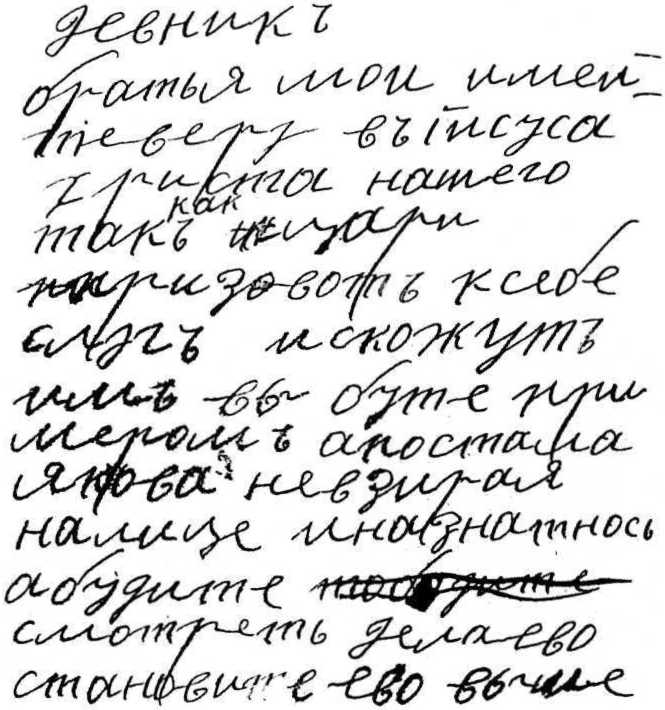 девникъ
братья мои имей=
теверу въ Iисуса
христа нашего
как
такъ цари
призовоть ксебе
слугъ искожутъ
имъ вы буте при
меромъ апостала
якова невзирая
налице иназнатнось
абудите тобудите
смотреть делаево
становите ево выше